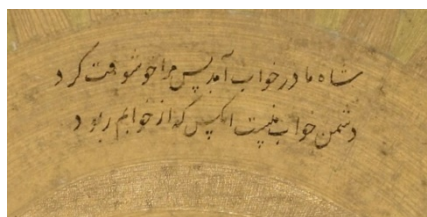 شاه ما در خواب آمد پس مرا خوشوقت کرد
دشمن خواب منست آنکس که از خوابم ربود